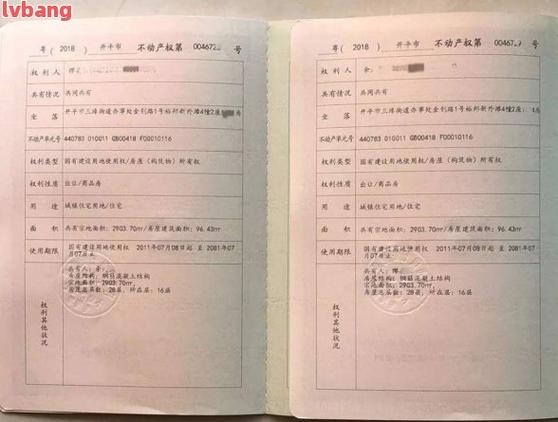 lvbang
粤( 2018 ) 开平市 不动产权第 004672 号
权利人
共有情况 共同共有
坐落 开平市三埠街道办事处金钊路1号裕邦新外滩4幢2座
不动产单元号 440783 010011 GB00418 F00010116
权利类型 国有建设用地使用权/房屋(构筑物)所有权
权利性质 出让/商品房
用途 城镇住宅用地/住宅
面积 共有宗地面积: 2903.70㎡/房屋建筑面积: 96.43㎡
使用期限 国有建设用地使用权 2011年07月08日起 至 2081年07
月07日止
权利其他状况
共有人:
房屋结构: 钢筋混凝土结构
宗地面积: 2903.70㎡,
房屋总层数: 28层, 所在层: 16层
粤( 2018 ) 开平市 不动产权第 00467 号
权利人 余
共有情况 共同共有
坐落 开平市三埠街道办事处金钊路1号裕邦新外滩4幢2座
不动产单元号 440783 010011 GB00418 F00010116
权利类型 国有建设用地使用权/房屋(构筑物)所有权
权利性质 出让/商品房
用途 城镇住宅用地/住宅
面积 共有宗地面积: 2903.70㎡/房屋建筑面积: 96.43㎡
使用期限 国有建设用地使用权 2011年07月08日起 至 2081年
07月07日止
权利其他状况
共有人:
房屋结构: 钢筋混凝土结构
宗地面积: 2903.70㎡,
房屋总层数: 28层, 所在层: 16层
lvbang